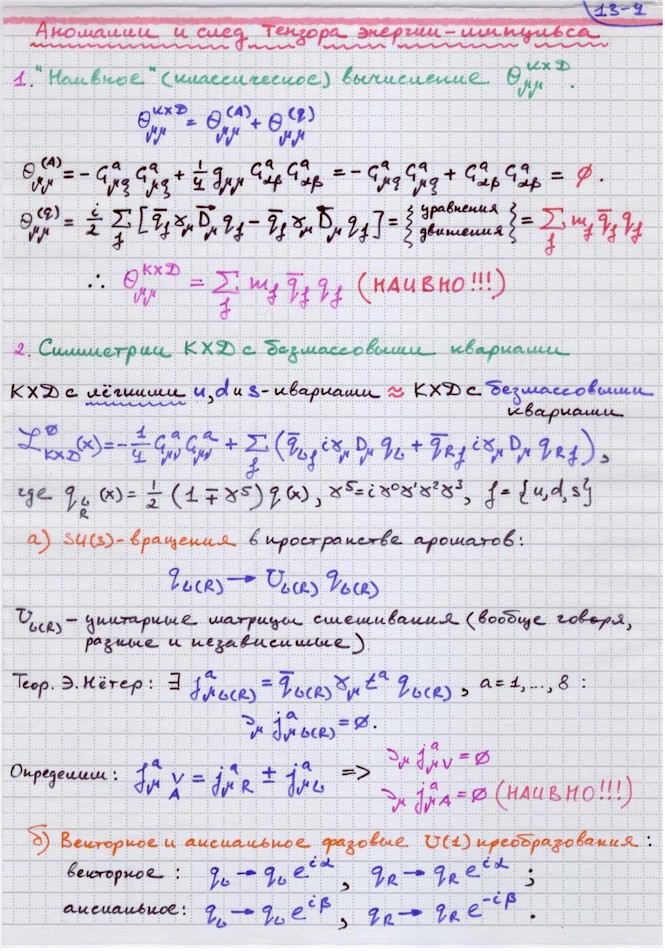 13-1
Аномалии и след тензора энергии-импульса
1. "Наивное" (классическое) вычисление Θ_μμ^КХД.
Θ_μμ^КХД = Θ_μμ^(A) + Θ_μμ^(q)
Θ_μμ^(A) = - G_μξ^a G_μξ^a + 1/4 g_μμ G_αβ^a G_αβ^a = - G_μξ^a G_μξ^a + G_αβ^a G_αβ^a = ∅.
Θ_μμ^(q) = i/2 Σ_f [q̄_f γ_μ D⃗_μ q_f - q̄_f γ_μ D⃖_μ q_f] = {уравнения движения} = Σ_f m_f q̄_f q_f
∴ Θ_μμ^КХД = Σ_f m_f q̄_f q_f (НАИВНО!!!)
2. Симметрии КХД с безмассовыми кварками
КХД с лёгкими u, d и s-кварками ≈ КХД с безмассовыми
кварками
ℒ_КХД^∅(x) = - 1/4 G_μν^a G_μν^a + Σ_f (q̄_Lf iγ_μ D_μ q_L + q̄_Rf iγ_μ D_μ q_Rf),
где q_L/R (x) = 1/2 (1 ∓ γ⁵) q(x), γ⁵ = iγ⁰γ¹γ²γ³, f = {u, d, s}
а) SU(3)-вращения в пространстве ароматов:
q_L(R) → U_L(R) q_L(R)
U_L(R) – унитарные матрицы смешивания (вообще говоря,
разные и независимые)
Теор. Э. Нётер: ∃ j_μL(R)^a = q̄_L(R) γ_μ t^a q_L(R), a = 1, ..., 8 :
∂_μ j_μL(R)^a = ∅.
Определим: j_μ V/A^a = j_μR^a ± j_μL^a => ∂_μ j_μV^a = ∅
∂_μ j_μA^a = ∅ (НАИВНО!!!)
б) Векторное и аксиальное фазовые U(1) преобразования:
векторное: q_L → q_L e^iα, q_R → q_R e^iα ;
аксиальное: q_L → q_L e^iβ, q_R → q_R e^-iβ.